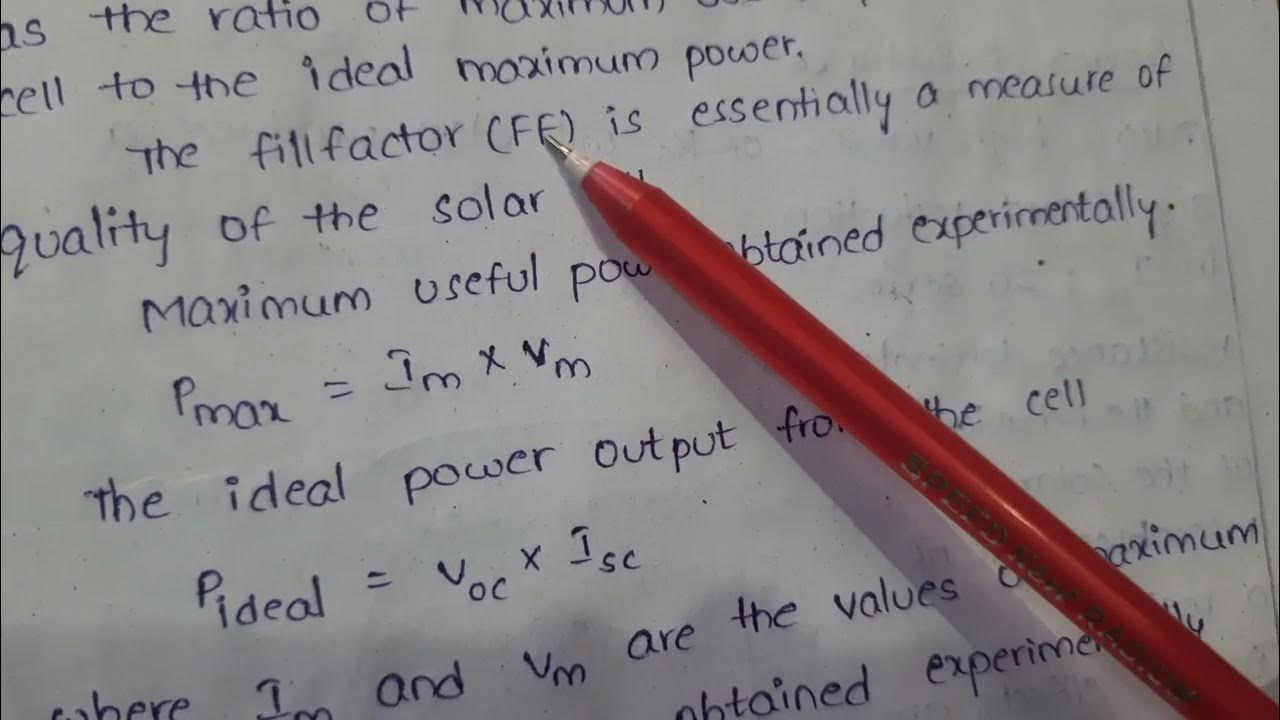 as the ratio of maximum
cell to the ideal maximum power.
The fill factor (FF) is essentially a measure of
quality of the solar
Maximum useful pow obtained experimentally.
Pmax = Im × Vm
The ideal power output from the cell
Pideal = Voc × Isc
where Im and Vm are the values of maximum
obtained experimentally
SPEED